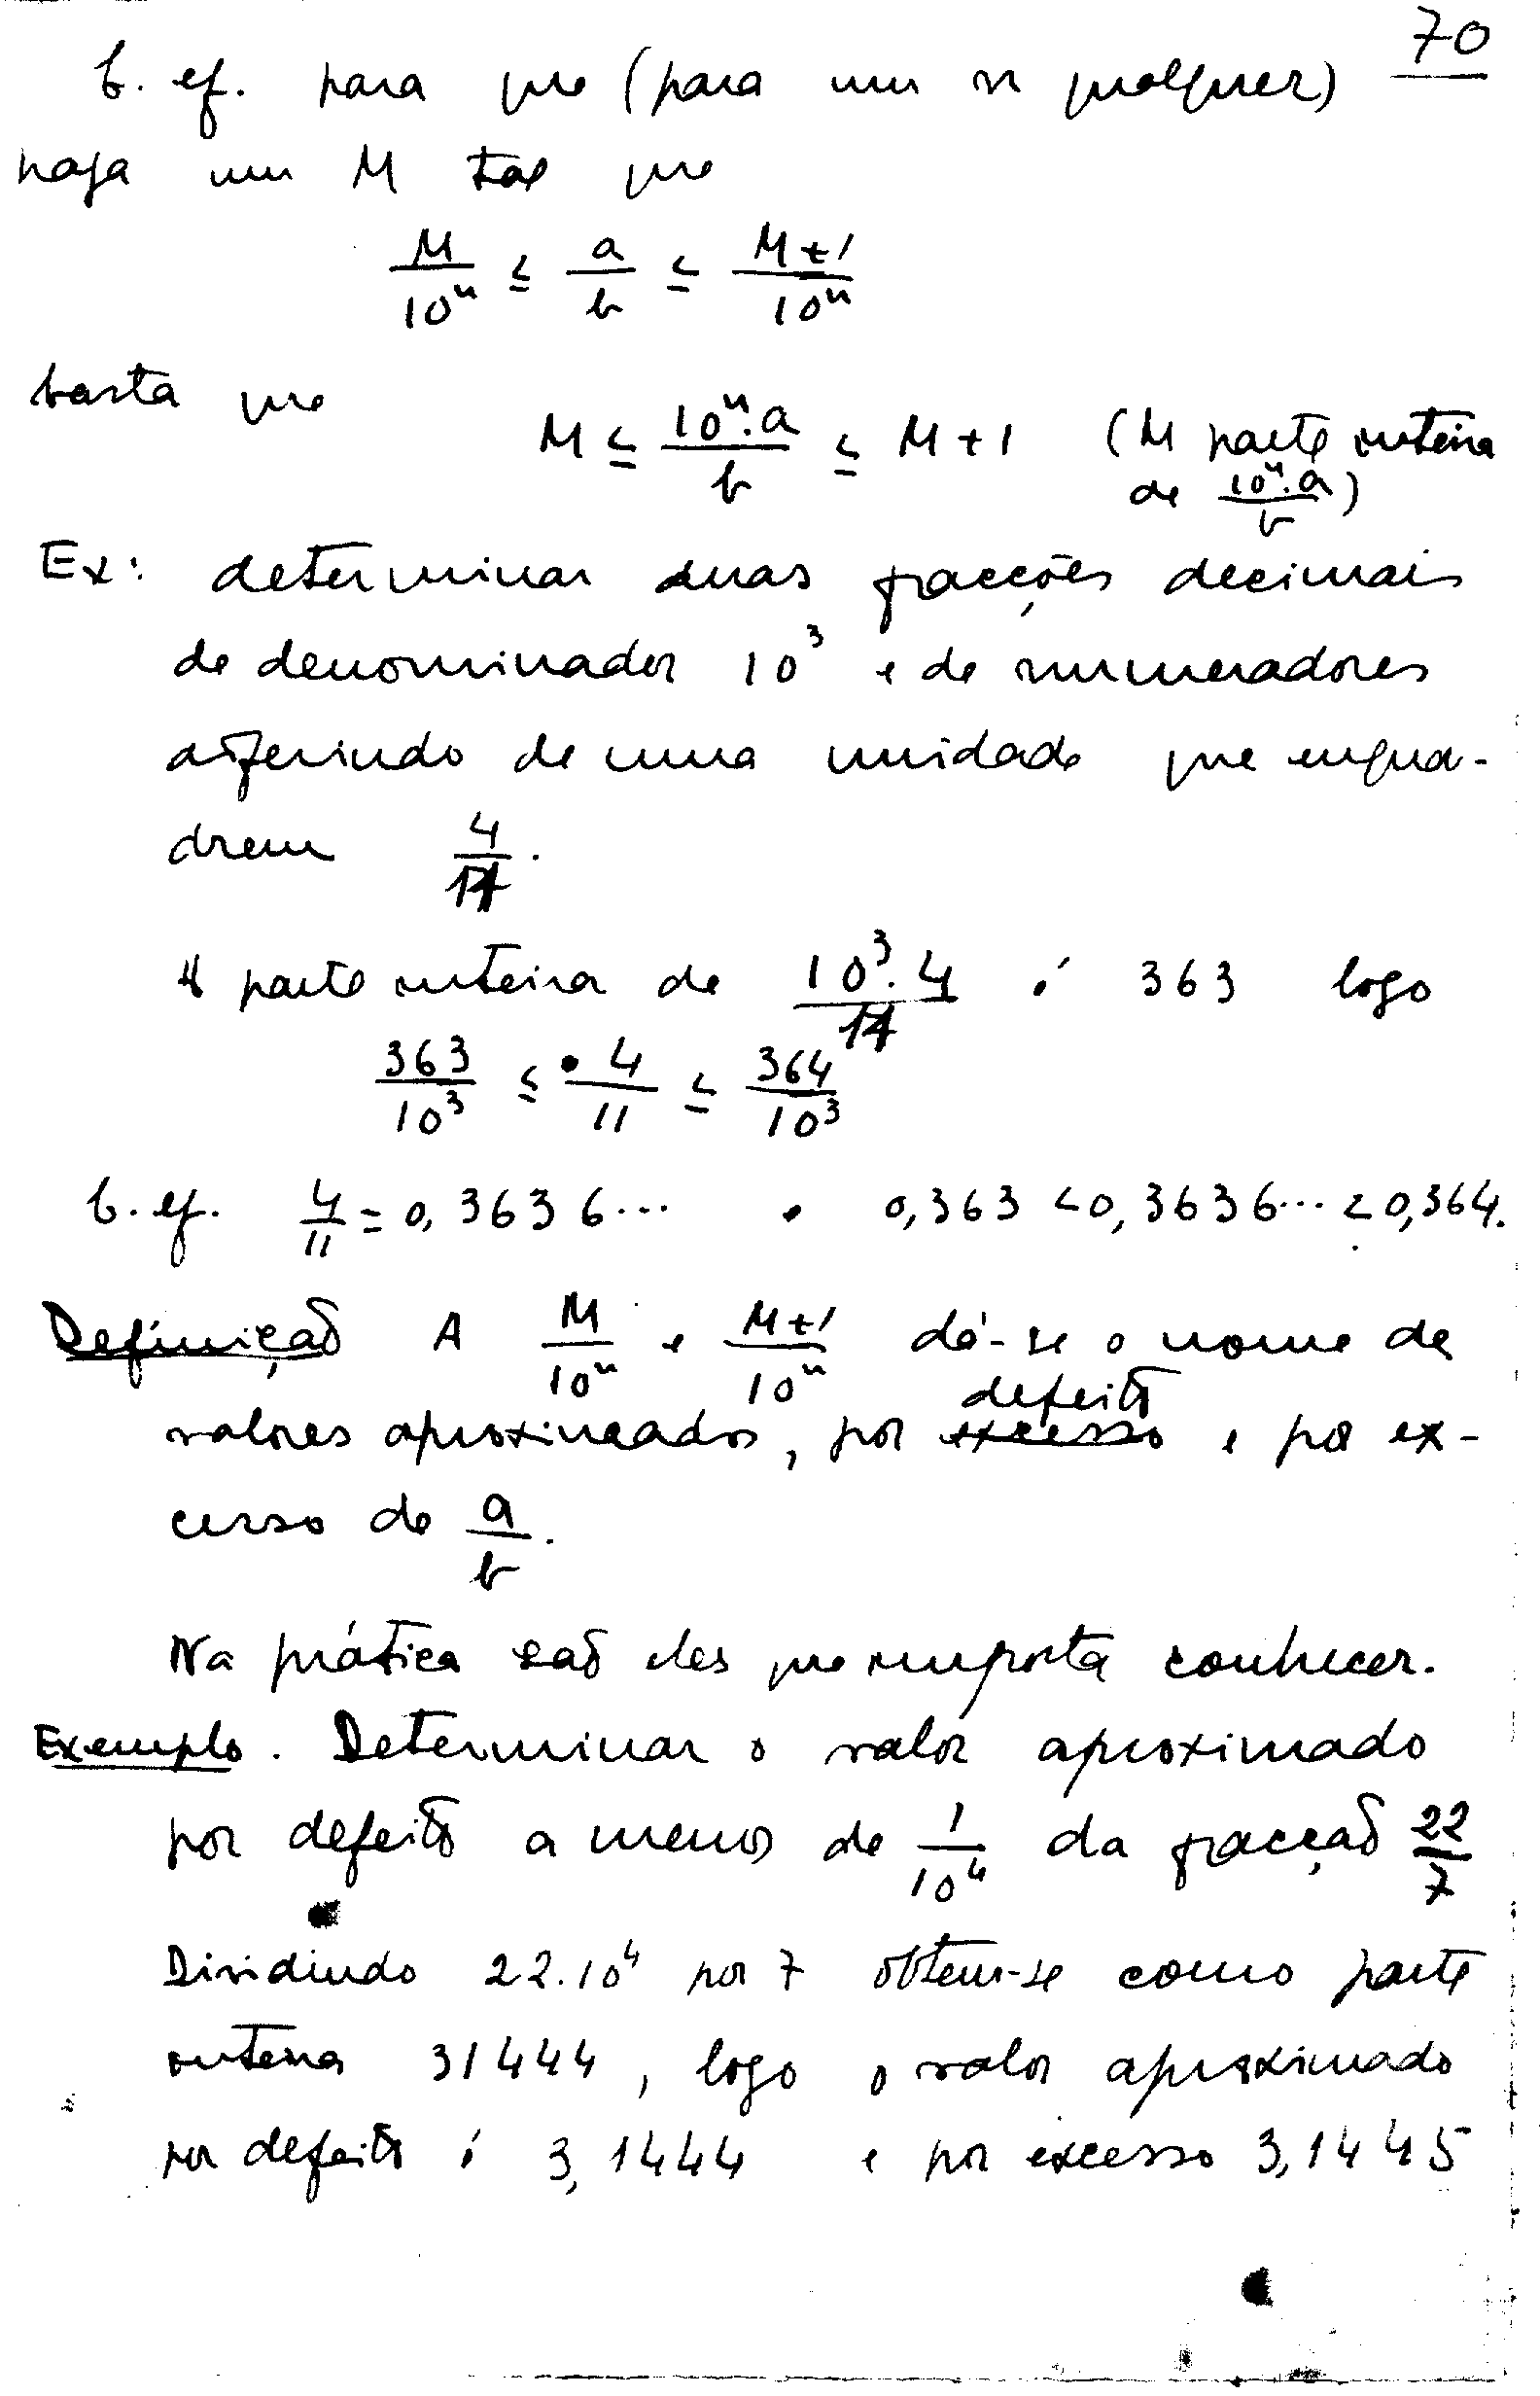 70
b. ef. para que (para um n qualquer)
haja um M tal que
M/10ⁿ ≤ a/b ≤ M+1/10ⁿ
basta que
M ≤ 10ⁿ.a/b ≤ M+1 (M parte inteira
de 10ⁿ.a/b)
Ex: determinar duas fracções decimais
de denominador 10³ e de numeradores
diferindo de uma unidade que enqua-
drem 4/11.
A parte inteira de 10³.4/11 é 363 logo
363/10³ ≤ 4/11 ≤ 364/10³
b. ef. 4/11 = 0,3636... 0,363 < 0,3636... < 0,364.
Definição A M/10ⁿ e M+1/10ⁿ dá-se o nome de
defeito
valores aproximados, por excesso e por ex-
cesso de a/b.
Na prática são eles que importa conhecer.
Exemplo. Determinar o valor aproximado
por defeito a menos de 1/10⁴ da fracção 22/7
Dividindo 22.10⁴ por 7 obtem-se como parte
inteira 31444, logo o valor aproximado
por defeito é 3,1444 e por excesso 3,1445